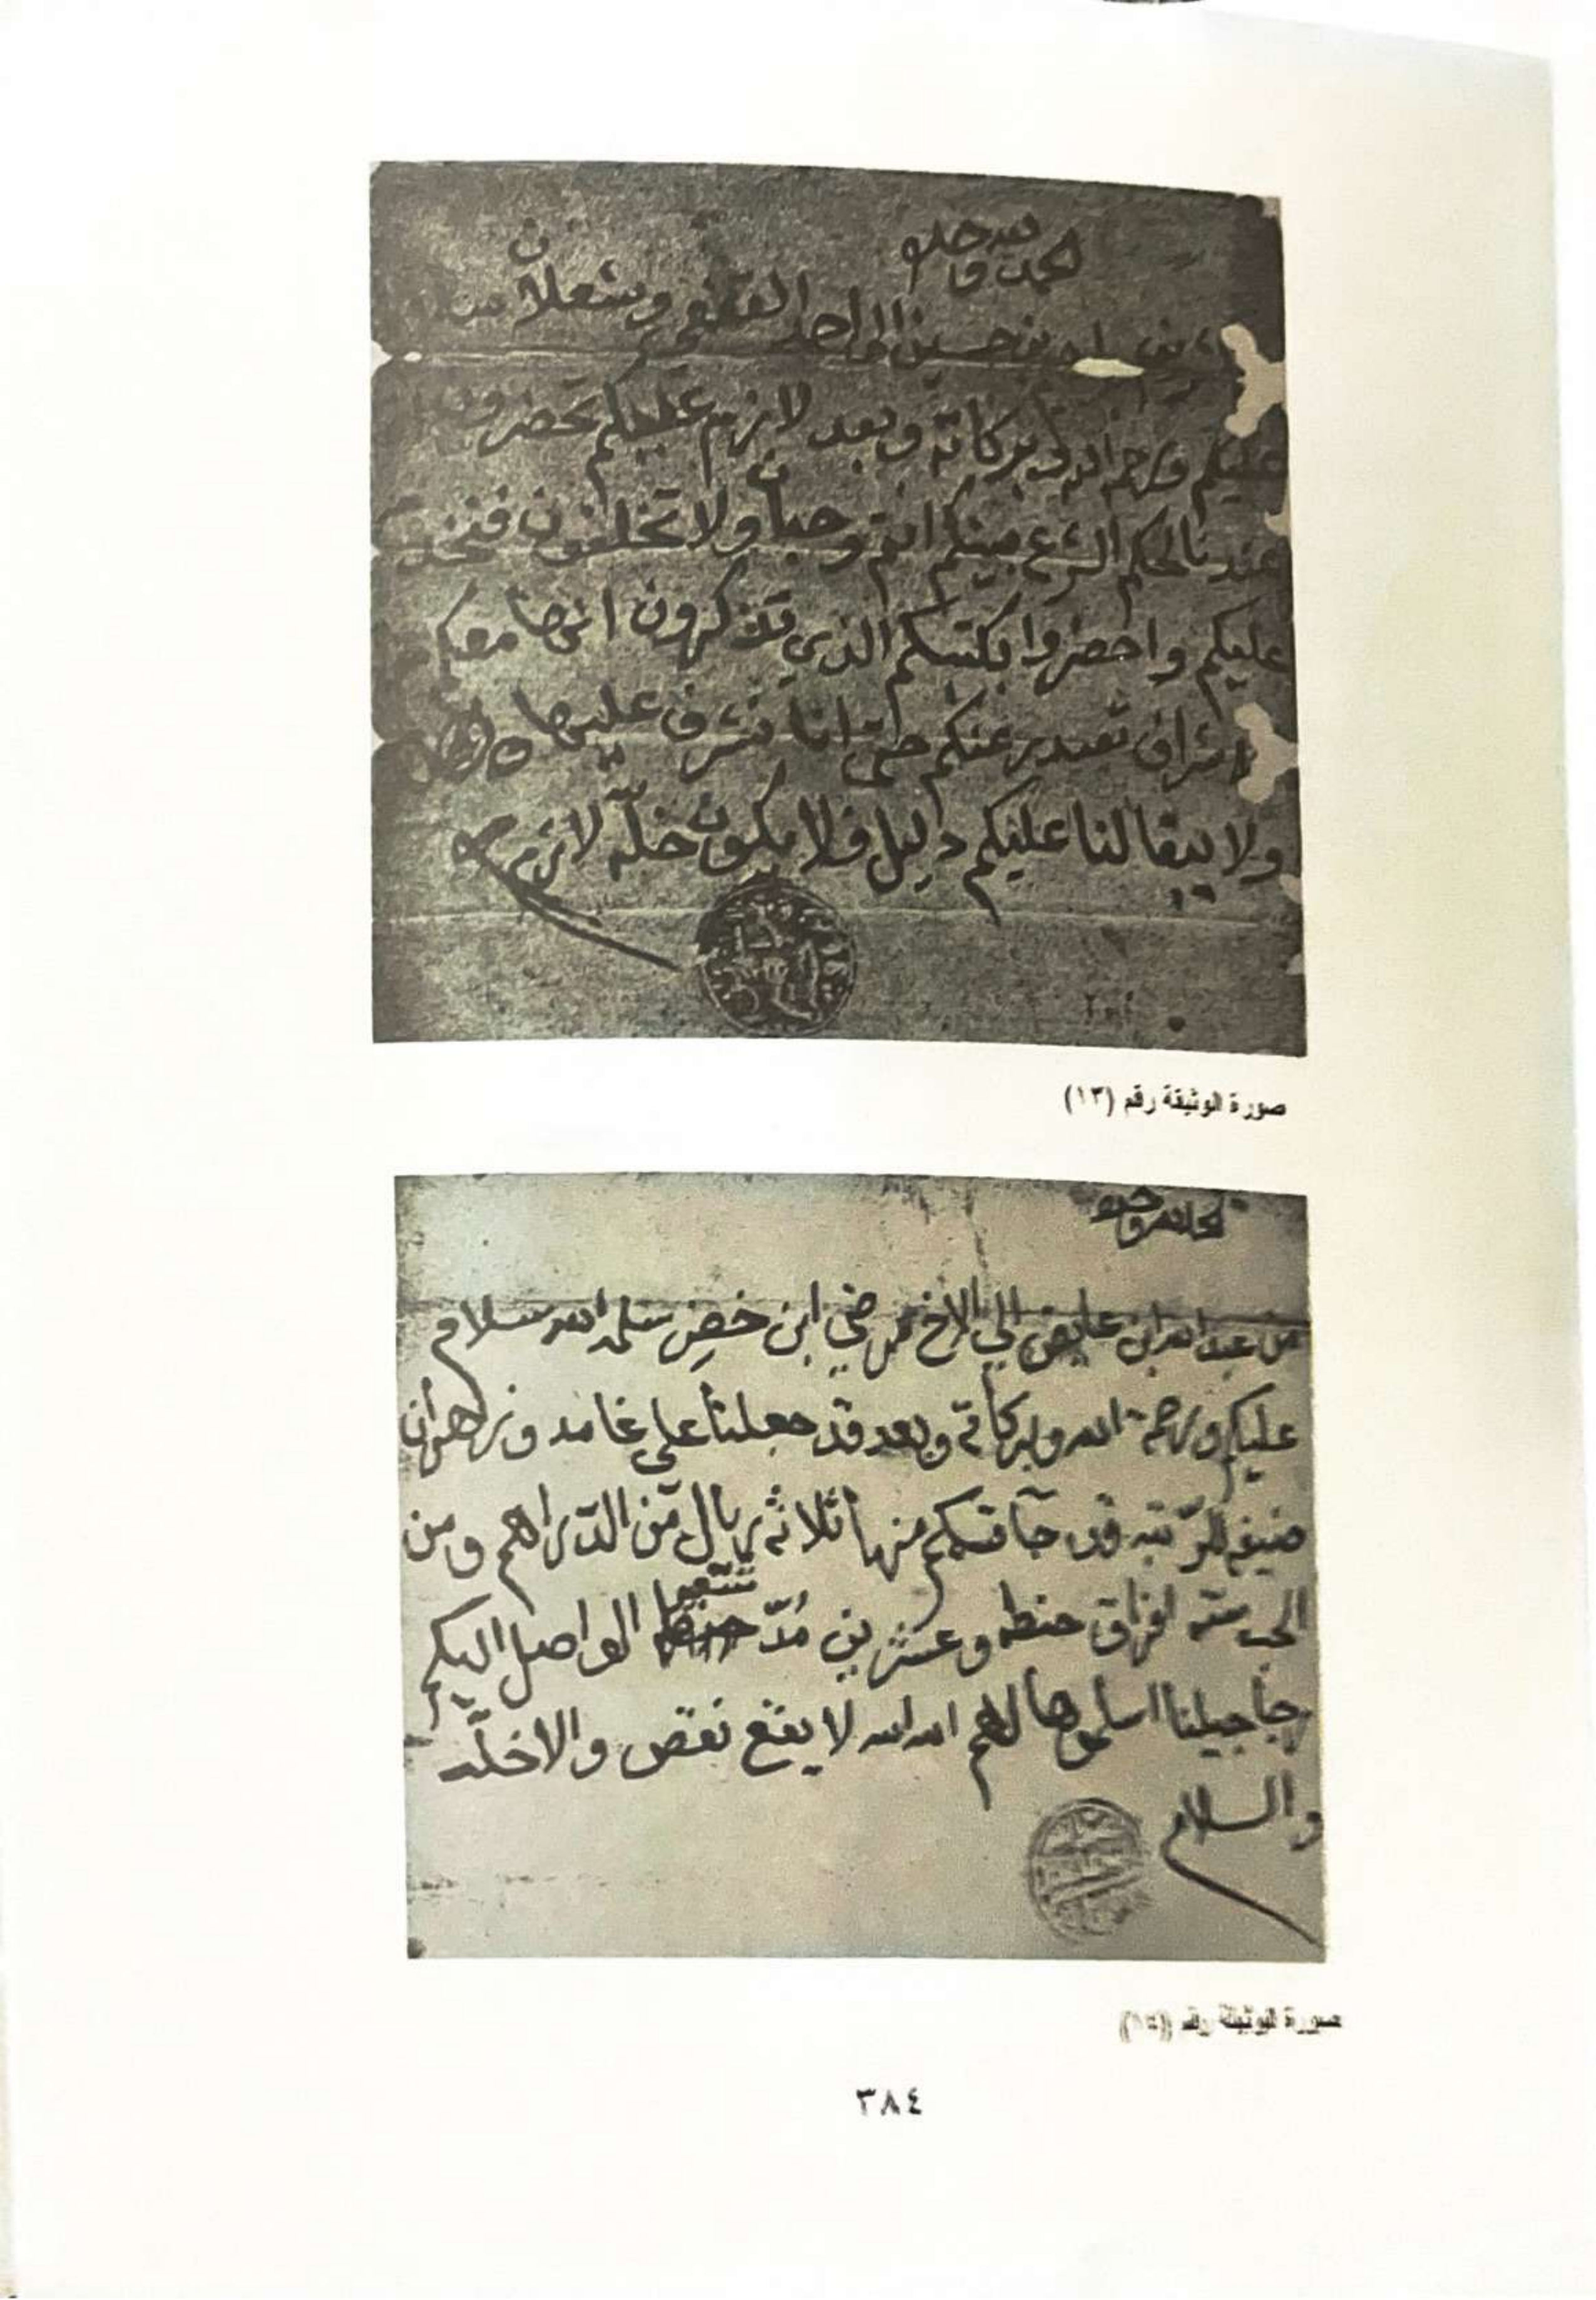 الحمد لله وحده
بن حسين الى احمد القفعي وشعلان
عليكم ورحمة الله وبركاته وبعد لازم عليكم تحضرون
عندنا لحكم الشرع بينكم انتم و ولا تخلفون
عليكم واحضروا بكتبكم الذي تذكرون انها معكم
عنكم حتى اننا نشرف عليها
ولا يبقا لنا عليكم دليل فلا يكون خله لازم
صورة الوثيقة رقم (١٣)
الحمد لله وحده
من عبد الله ابن عايض الي الاخ ابن خضر سلمه الله سلام
عليكم ورحمة الله وبركاته وبعد قد جعلنا علي غامد وزهران
للرتبه قد منها ثلاثه ريال من الدراهم ومن
الحب سته افراق حنطه وعشرين مد شعير الواصل اليكم
اسلموها لهم الله الله لا يقع نقص والا خله
والسلام
صورة الوثيقة رقم
٣٨٤